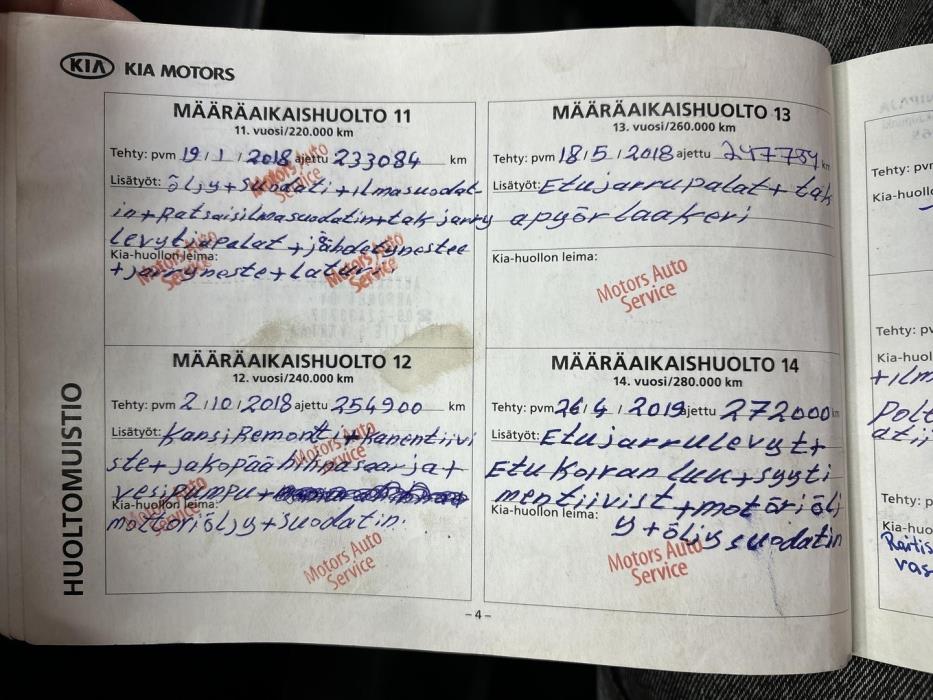 KIA KIA MOTORS
HUOLTOMUISTIO
MÄÄRÄAIKAISHUOLTO 11
11. vuosi/220.000 km
Tehty: pvm 19 / 1 / 2018 ajettu 233084 km
Lisätyöt: öljy+suodati+ilmasuodat
in+Ratsaisilmasuodatin+tak jarru
levyt+japalat+jähdetynestee
Kia-huollon leima:
+jarruneste+Laturi
Motors Auto
Service
Motors Auto
Service
Motors Auto
Service
MÄÄRÄAIKAISHUOLTO 12
12. vuosi/240.000 km
Tehty: pvm 2 / 10 / 2018 ajettu 254900 km
Lisätyöt: KansiRemont + Kanentiivi
ste+jakopäähihnasarja+
vesipumpu+
Kia-huollon leima:
mottoriöljy+suodatin.
Motors Auto
Service
Motors Auto
Service
Motors Auto
Service
MÄÄRÄAIKAISHUOLTO 13
13. vuosi/260.000 km
Tehty: pvm 18 / 5 / 2018 ajettu 247754 km
Lisätyöt: Etujarrupalat+tak
apyörlaakeri
Kia-huollon leima:
Motors Auto
Service
MÄÄRÄAIKAISHUOLTO 14
14. vuosi/280.000 km
Tehty: pvm 26 / 4 / 2019 ajettu 272000 km
Lisätyöt: Etujarrulevyt+
Etukoiranluu+syyti
mentiivist+motöriölj
Kia-huollon leima:
y+öljysuodatin
Motors Auto
Service
- 4 -
Tehty: pvr
Kia-huollo
Tehty: pv
Kia-huol
+ilm
Polt
atii
Tehty: p
Kia-huo
Raitis
vas